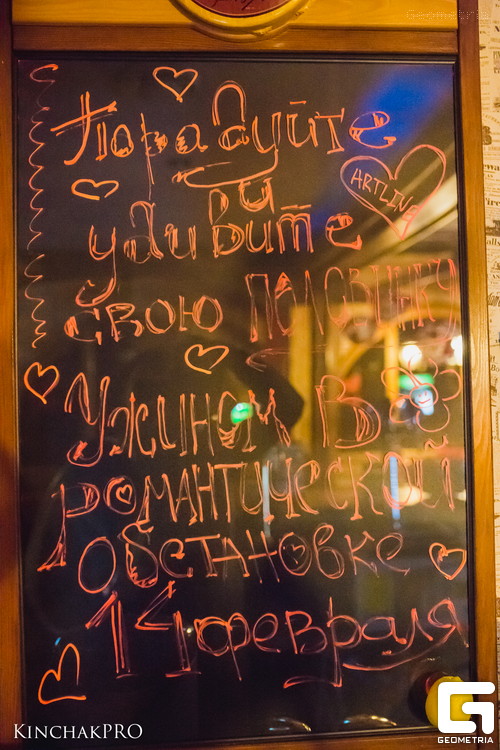 Geometria
Порадуйте
и
ARTLINE
удивите
свою половинку
Ужином в
романтической
обстановке
14 февраля
KinchakPRO
G
GEOMETRIA